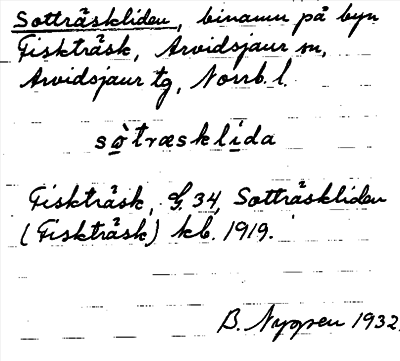 Sotträskliden, binamn på byn
Fiskträsk, Arvidsjaur sn,
Arvidsjaur tg, Norrb. l.
sò̱træskli̱da
Fiskträsk, G. 34, Sotträskliden
(Fiskträsk) kb. 1919.
B. Nyggren 1932.